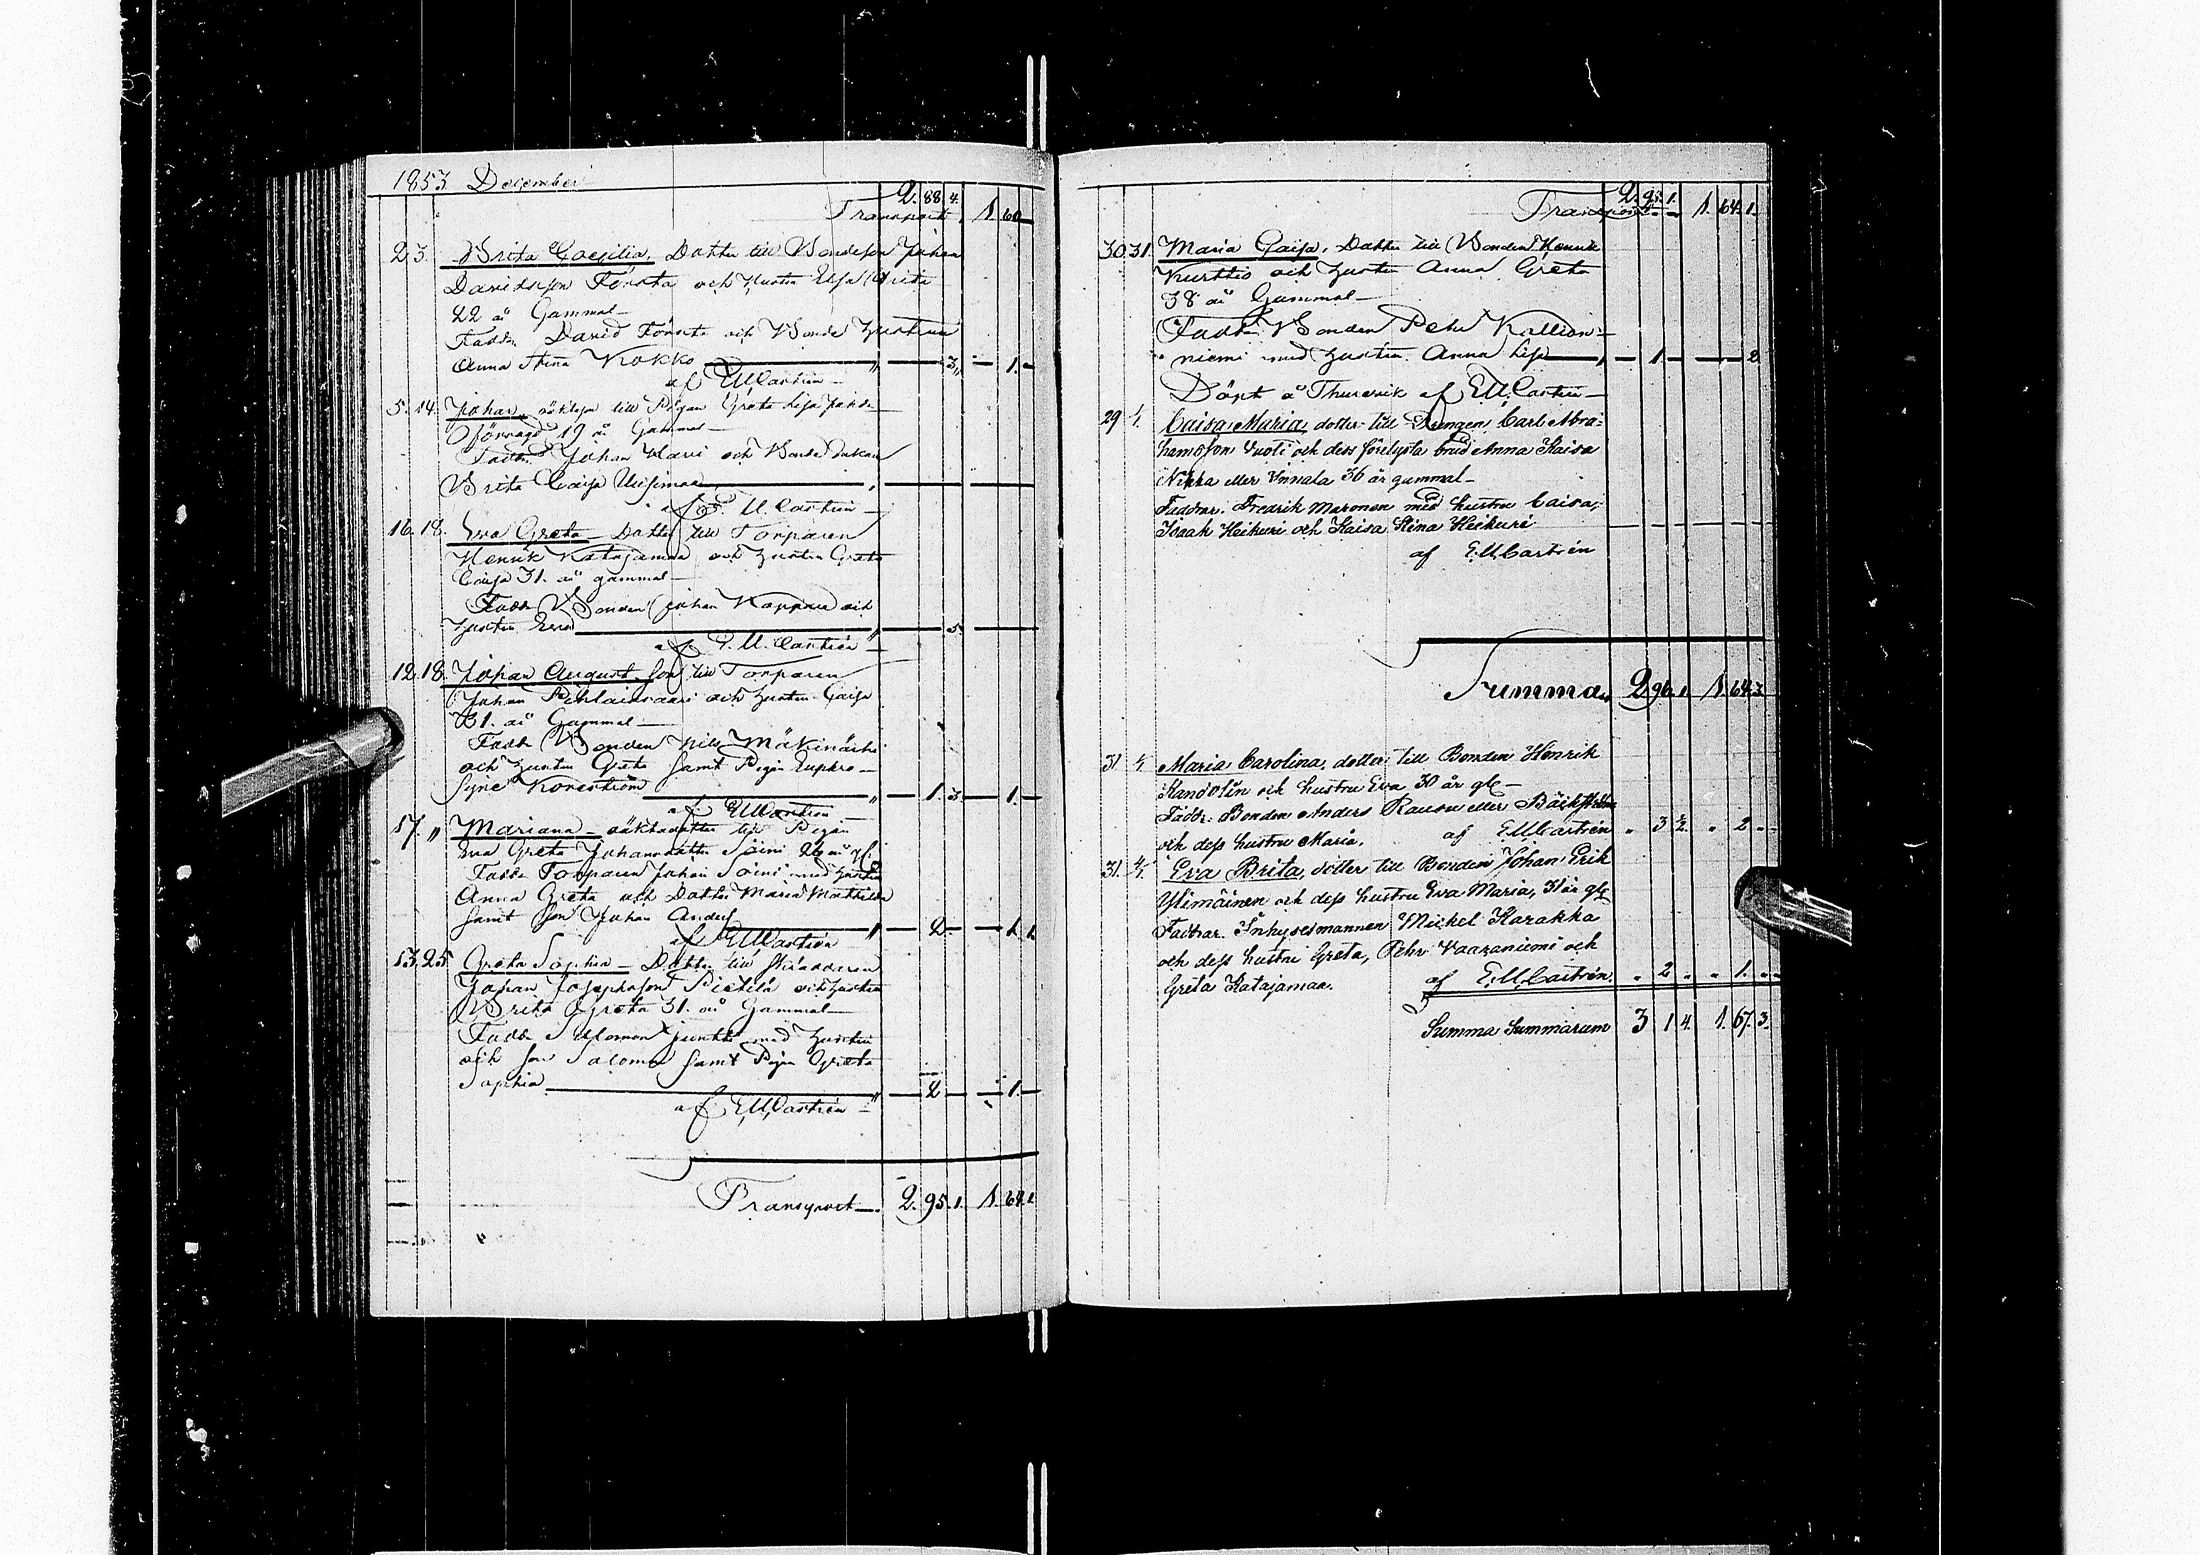 1853 December
2. 88. 4.
Transport 1. 60
2 3. Brita Caecilia, Dotter till Bondeson Johan
Davidsson Första och Hustru Elsa Brita
22 år Gammal
Fadd. David Första och Bonde Hustrun
Anna Stina Kokko " 3 1.
af E.U. Castrén
5. 14. Johan, oäkta son till Pigan Greta Lisa
19 år Gammal
Fadd. Johan och Bonde
Brita Caisa "
af E. U. Castrén
16. 18. Eva Greta Dotter till Torparen
Henrik Katajamaa och Hustru Greta
Caisa 31. år gammal
Fadd. Bonden Johan och
Hustru Eva 5
af E. U. Castrén "
12. 18. Johan August, Son till Torparen
Johan Pihlaisvaari och Hustru Caisa
31. år Gammal
Fadd. Bonden Nils
och Hustru Greta samt Pigan Euphro-
syne " 1. 3 1.
af E U Castrén
17. " Mariana oäkta dotter till Pigan
Eva Greta Johansdotter Soini 26 år gl.
Fadd. Torparen Johan Soini med Hustru
Anna Greta och Dotter Maria Mathilda
samt Son Johan Anders " 2 1. 1.
af E U Castrén
13. 25. Greta Sophia Dotter till Skräddaren
Johan Josephsson Pietilä och Hustru
Brita Greta 31. år Gammal
Fadd. Salomon Juntti med Hustru
och son Salomon samt Pigan Greta
Sophia 2 1.
af E U Castrén "
Transport 2. 95. 1. 1. 64. 1.
Transport 2. 95. 1. 1. 64. 1.
30. 31. Maria Caisa, Dotter till Bonden Henrik
Kurttio och Hustru Anna Greta
38 år Gammal
Fadd. Bonden Petr Kallion-
niemi med Hustru Anna Lisa " 1 2
Döpt å Thurevik af E U Castrén
29 1/1 Caisa Maria, dotter till Drengen Carl Abra-
hamsson Vuoti och dess förelysta brud Anna Kaisa
Nikka eller Innala 36 år gammal
Faddrar. Fredrik Maronen med hustru Caisa,
Isaak Heikuri och Kaisa Stina Heikuri
af E. U. Castrén
Summa 2 96. 1. 1. 64. 3
31 1/1 Maria Carolina, dotter till Bonden Henrik
Kandolin och hustru Eva 30 år gl
Faddr. Bonden Anders Rausu eller Bäckström
och dess hustru Maria. af E U Castrén " 3 1/2 " 2 "
31. 4/1 Eva Brita, dotter till Bonden Johan Erik
Ylimäinen och dess hustru Eva Maria, 31 år gl
Faddrar. Inhysesmannen Mickel Karakka
och dess hustru Greta, Pehr Vaaraniemi och
Greta Katajamaa. af E. U. Castrén. " 2 " " 1. "
Summa Summarum 3 1 4. 1. 67. 3.